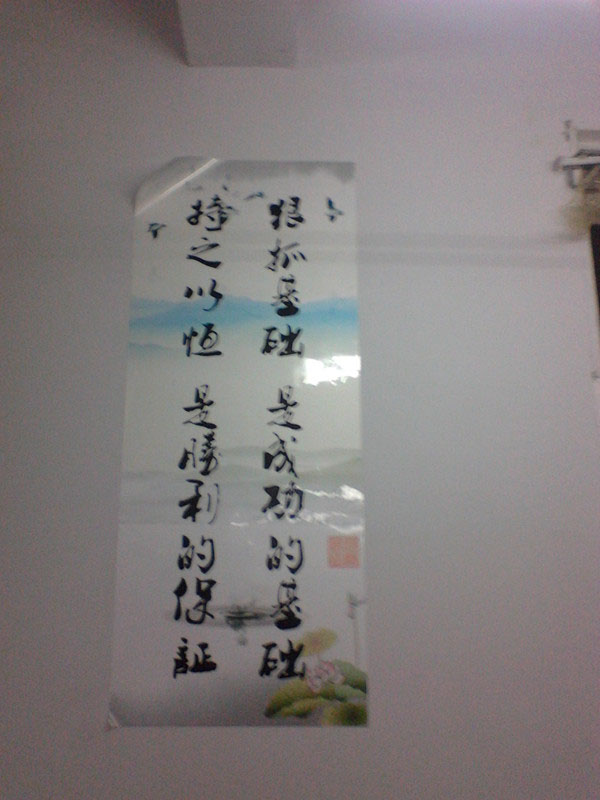 狠抓基础 是成功的基础
持之以恒 是勝利的保証